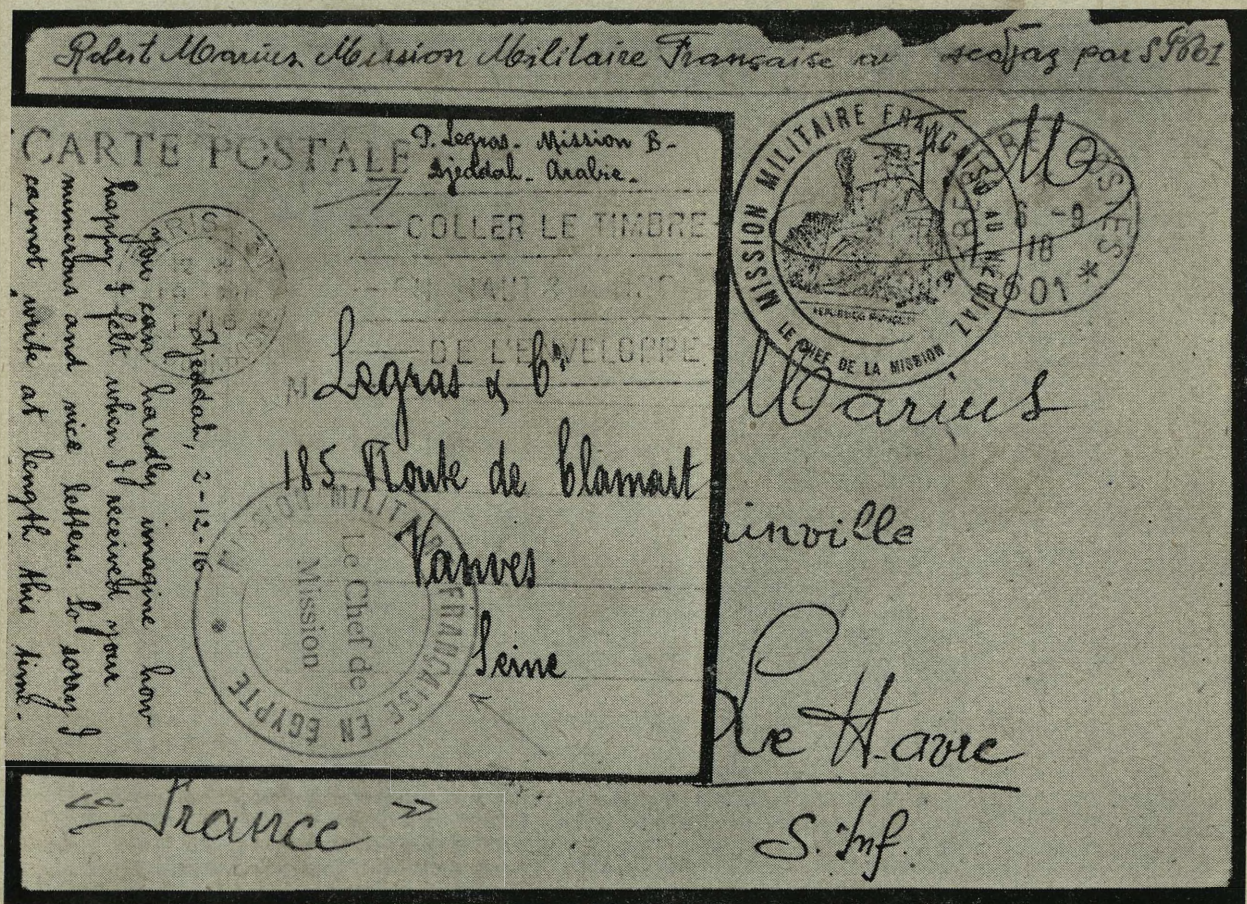 Robert Marius Mission Militaire Française au par SP601
CARTE POSTALE
P. Legras - Mission B-
Djeddah - Arabie -
COLLER LE TIMBRE
EN HAUT &
DE L'ENVELOPPE
PARIS
1916
M Legras & Cie
185 Route de Clamart
Vanves
Seine
Djeddah, 2-12-16
you can hardly imagine how
happy I felt when I received your
numerous and nice letters. So sorry I
cannot write at length this time.
MISSION MILITAIRE FRANÇAISE EN EGYPTE
Le Chef de
Mission
MISSION MILITAIRE FRANÇAISE AU HEDJAZ
LE CHEF DE LA MISSION
REPUBLIQUE FRANÇAISE
POSTES
6 -9
18
601 *
M
Marius
Le Havre
S. Inf.
« France »